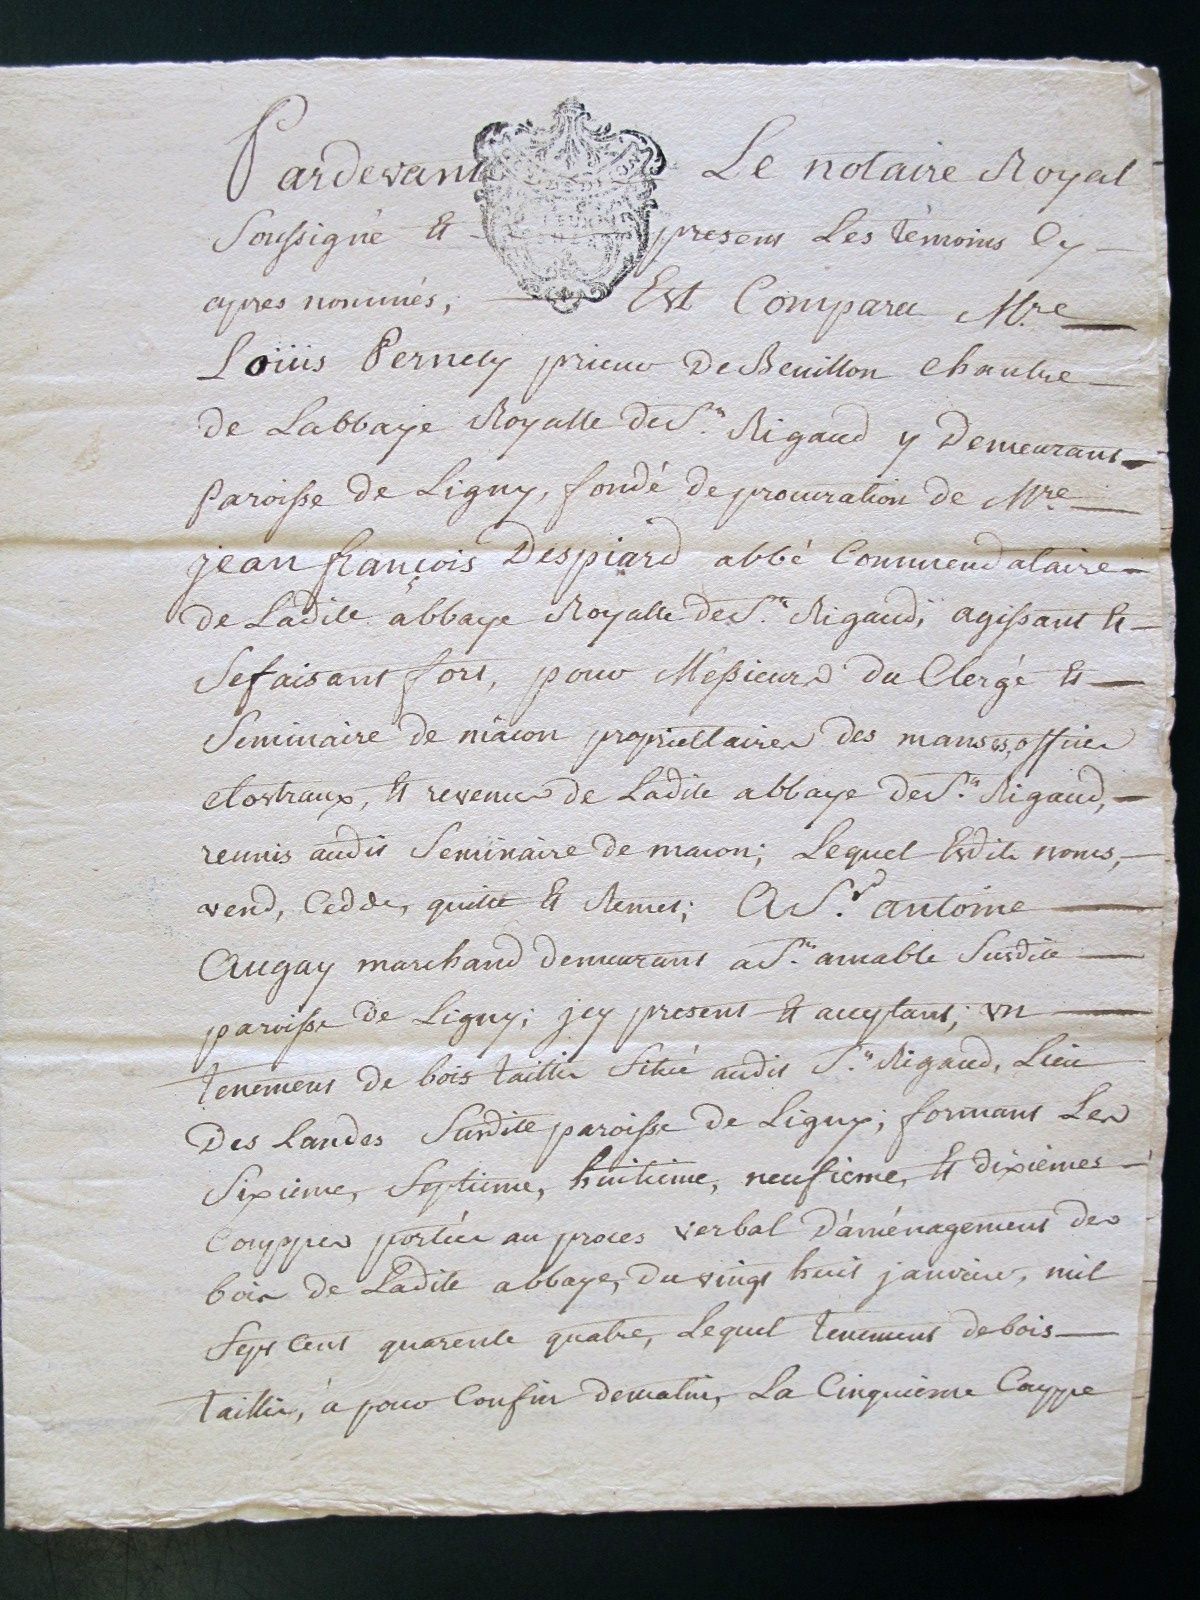 Pardevant Le notaire Royal
Soussigné Et presens Les témoins Cy
apres nommés, Est Comparu Mre
Loüis Pernety prieur De Beuillon Chantre
de Labbaye Royalle de St. Rigaud y Demeurant
Paroisse de Ligny, fondé de procuration de Mre
jean françois Despiard abbé Commendataire
de Ladite abbaye Royalle de St. Rigaud, agissant Et
Se faisant fort, pour Messieurs du Clergé Et
Seminaire de mâcon proprietaires des manses, offices
clostraux, Et revenus de Ladite abbaye de St. Rigaud,
reunis audit Seminaire de macon; Lequel Esdits noms,
vend, Cedde, quitte Et Remet; A Sr. antoine
Augay marchand demeurant a St. amable Susdite
paroisse de Ligny; jcy present Et acceptant; vn
tenement de bois taillis Situé audit St. Rigaud, Lieu
Des Landes Susdite paroisse de Ligny; formant Les
Sixieme, Septieme, huitieme, neufieme, Et dixièmes
Couppes portées au proces verbal D'aménagement des
bois de Ladite abbaye, du vingt huit janvier, mil
Sept Cent quarente quatre, Lequel tenement de bois
taillis, à pour Confin de matin, La Cinquieme Couppe